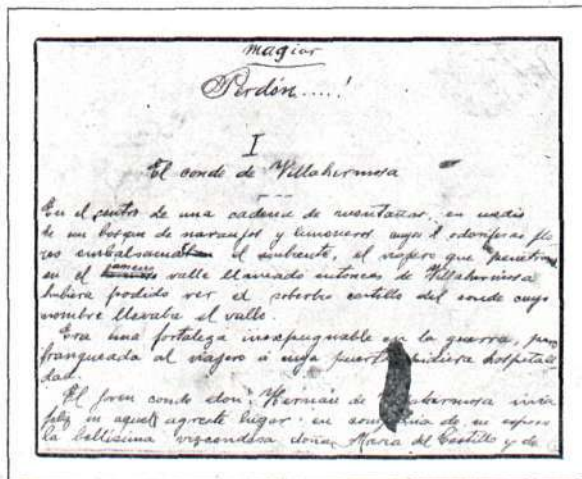 magior
Perdón.....!
I
El conde de Villahermosa
En el centro de una cadena de montañas, en medio
de un bosque de naranjos y limoneros cuyas odoríferas flo
res embalsaman el ambiente, el viajero que penetrara
en el ameno valle llamado entonces de Villahermosa
hubiera podido ver el soberbio castillo del conde cuyo
nombre llevaba el valle.
Era una fortaleza inexpugnable en la guerra, pero
franqueada al viajero á cuya puerta pidiera hospitali
dad.
El joven conde don Hernán de Villahermosa vivía
feliz en aquel agreste lugar en compañía de su esposa
la bellísima vizcondesa doña María del Castillo y de